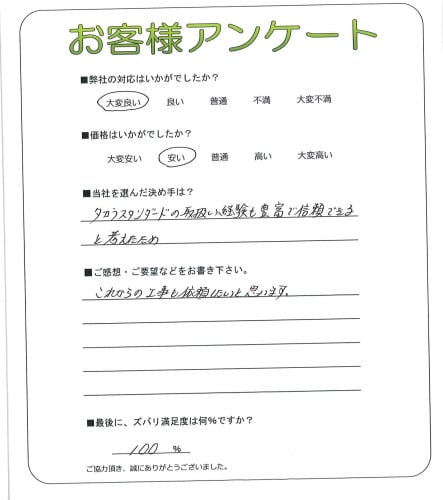 お客様アンケート
■弊社の対応はいかがでしたか？
大変良い 良い 普通 不満 大変不満
■価格はいかがでしたか？
大変安い 安い 普通 高い 大変高い
■当社を選んだ決め手は？
タカラスタンダードの取扱い経験も豊富で信頼できる
と考えたため
■ご感想・ご要望などをお書き下さい。
これからの工事も依頼したいと思います。
■最後に、ズバリ満足度は何%ですか？
100 %
ご協力頂き、誠にありがとうございました。